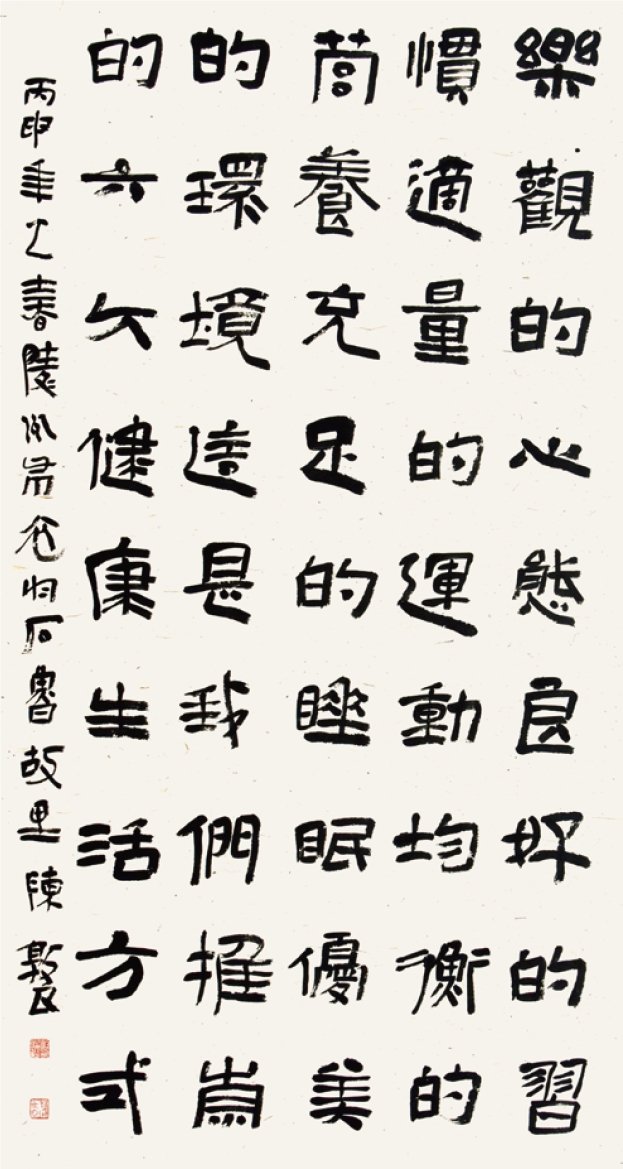 樂觀的心態良好的習
慣適量的運動均衡的
营養充足的睡眠優美
的環境這是我們推崇
的六大健康生活方式
丙申年之春陵州石魯故里陳